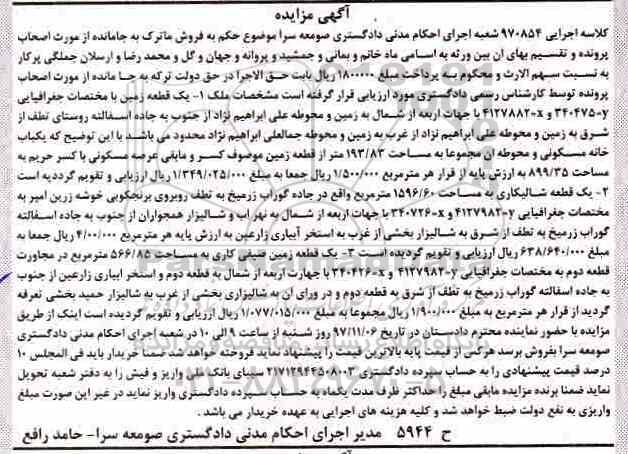 آگهی مزایده
کلاسه اجرایی ۹۷۰۸۵۴ شعبه اجرای احکام مدنی دادگستری صومعه سرا موضوع حکم به فروش ماترک به جامانده از مورث اصحاب
پرونده و تقسیم بهای ان بین ورثه به اسامی ماد خانم و بمانی و جمشید و پروانه و جهان و گل و محمد رضا و ارسلان جملگی پرکار
به نسبت سهم الارث و محکوم به پرداخت مبلغ ۱۸۰۰۰۰۰ ریال بابت حق الاجرا در حق دولت ترکه به جا مانده از مورث اصحاب
پرونده توسط کارشناس رسمی دادگستری مورد ارزیابی قرار گرفته است مشخصات ملک ۱- یک قطعه زمین با مختصات جغرافیایی
۳۴۰۴۷۵=y و ۴۱۲۷۸۸۲۰=x با جهات اربعه از شمال به زمین و محوطه علی ابراهیم نژاد از جنوب به جاده اسفالته روستای تطف از
شرق به زمین و محوطه علی ابراهیم نژاد از غرب به زمین و محوطه جمالعلی ابراهیم نژاد محدود می باشد با این توضیح که یکباب
خانه مسکونی و محوطه ان مجموعا به مساحت ۱۹۳/۸۳ متر از قطعه زمین موصوف کسر و مابقی عرصه مسکونی با کسر حریم به
مساحت ۸۹۹/۳۵ به ارزش پایه از قرار هر مترمربع ۱/۵۰۰/۰۰۰ ریال جمعا به مبلغ ۱/۳۴۹/۰۲۵/۰۰۰ ریال ارزیابی و تقویم گردیده است
۲- یک قطعه شالیکاری به مساحت ۱۵۹۶/۶۰ مترمربع واقع در جاده گوراب زرمیخ به تطف روبروی برنجکوبی خوشه زرین امپر به
مختصات جغرافیایی ۴۱۲۷۹۸۲=y و ۳۴۰۷۲۶=x با جهات اربعه از شمال به نهر اب و شالیزار همجواران از جنوب به جاده اسفالته
گوراب زرمیخ به تطف از شرق به شالیزار بخشی از غرب به استخر آبیاری زارعین به ارزش پایه هر مترمربع ۴/۰۰/۰۰۰ ریال جمعا به
مبلغ ۶۳۸/۶۴۰/۰۰۰ ریال ارزیابی و تقویم گردیده است ۳- یک قطعه زمین صیفی کاری به مساحت ۵۶۶/۸۵ مترمربع در مجاورت
قطعه دوم به مختصات جغرافیایی ۴۱۲۷۹۸۲=y و ۳۴۰۴۲۶=x با جهارت اربعه از شمال به قطعه دوم و استخر ابیاری زارعین از جنوب
به جاده اسفالته گوراب زرمیخ به تطف از شرق به قطعه دوم و در ورای ان به شالیزاری بخشی از غرب به شالیزار حمید بخشی تعرفه
گردید از قرار هر مترمربع به مبلغ ۱/۹۰۰/۰۰۰ ریال مجموعا به مبلغ ۱/۰۷۷/۰۱۵/۰۰۰ ریال ارزیابی و تقویم گردیده است اینک از طریق
مزایده با حضور نماینده محترم دادستان در تاریخ ۹۷/۱۱/۰۶ روز شنبه از ساعت ۹ الی ۱۰ در شعبه اجرای احکام مدنی دادگستری
صومعه سرا بفروش برسد هرکس از قیمت پایه بالاترین قیمت را پیشنهاد نماید فروخته خواهد شد ضمنا خریدار باید فی المجلس ۱۰
درصد قیمت پیشنهادی را به حساب سپرده دادگستری ۲۱۷۱۲۹۴۴۵۰۸۰۰۳ سیبای بانک ملی واریز و فیش را به دفتر شعبه تحویل
نماید ضمنا برنده مزایده مابقی مبلغ را حداکثر ظرف مدت یکماه به حساب سپرده دادگستری واریز نماید در غیر این صورت مبلغ
واریزی به نفع دولت ضبط خواهد شد و کلیه هزینه های اجرایی به عهده خریدار می باشد .
ح ۵۹۴۴ مدیر اجرای احکام مدنی دادگستری صومعه سرا- حامد رافع